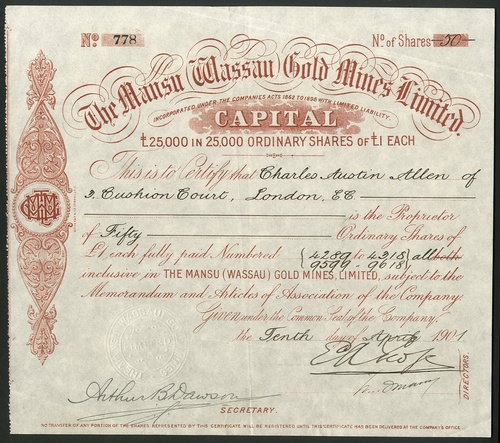 No 778 No. of Shares 50
The Mansu Wassau Gold Mines Limited.
INCORPORATED UNDER THE COMPANIES ACTS 1862 TO 1898 WITH LIMITED LIABILITY.
CAPITAL
£25,000 IN 25,000 ORDINARY SHARES OF £1 EACH
This is to Certify that Charles Austin Allen of
3, Cushion Court, London, EC
is the Proprietor
of Fifty Ordinary Shares of
£1 each fully paid Numbered 4289 to 4318 all both
9599 9618
inclusive in THE MANSU (WASSAU) GOLD MINES, LIMITED, subject to the
Memorandum and Articles of Association of the Company.
Given under the Common Seal of the Company.
the Tenth day of April 1901
DIRECTORS.
Arthur B Dawson
SECRETARY.
NO TRANSFER OF ANY PORTION OF THE SHARES REPRESENTED BY THIS CERTIFICATE WILL BE REGISTERED UNTIL THIS CERTIFICATE HAS BEEN DELIVERED AT THE COMPANY'S OFFICE.